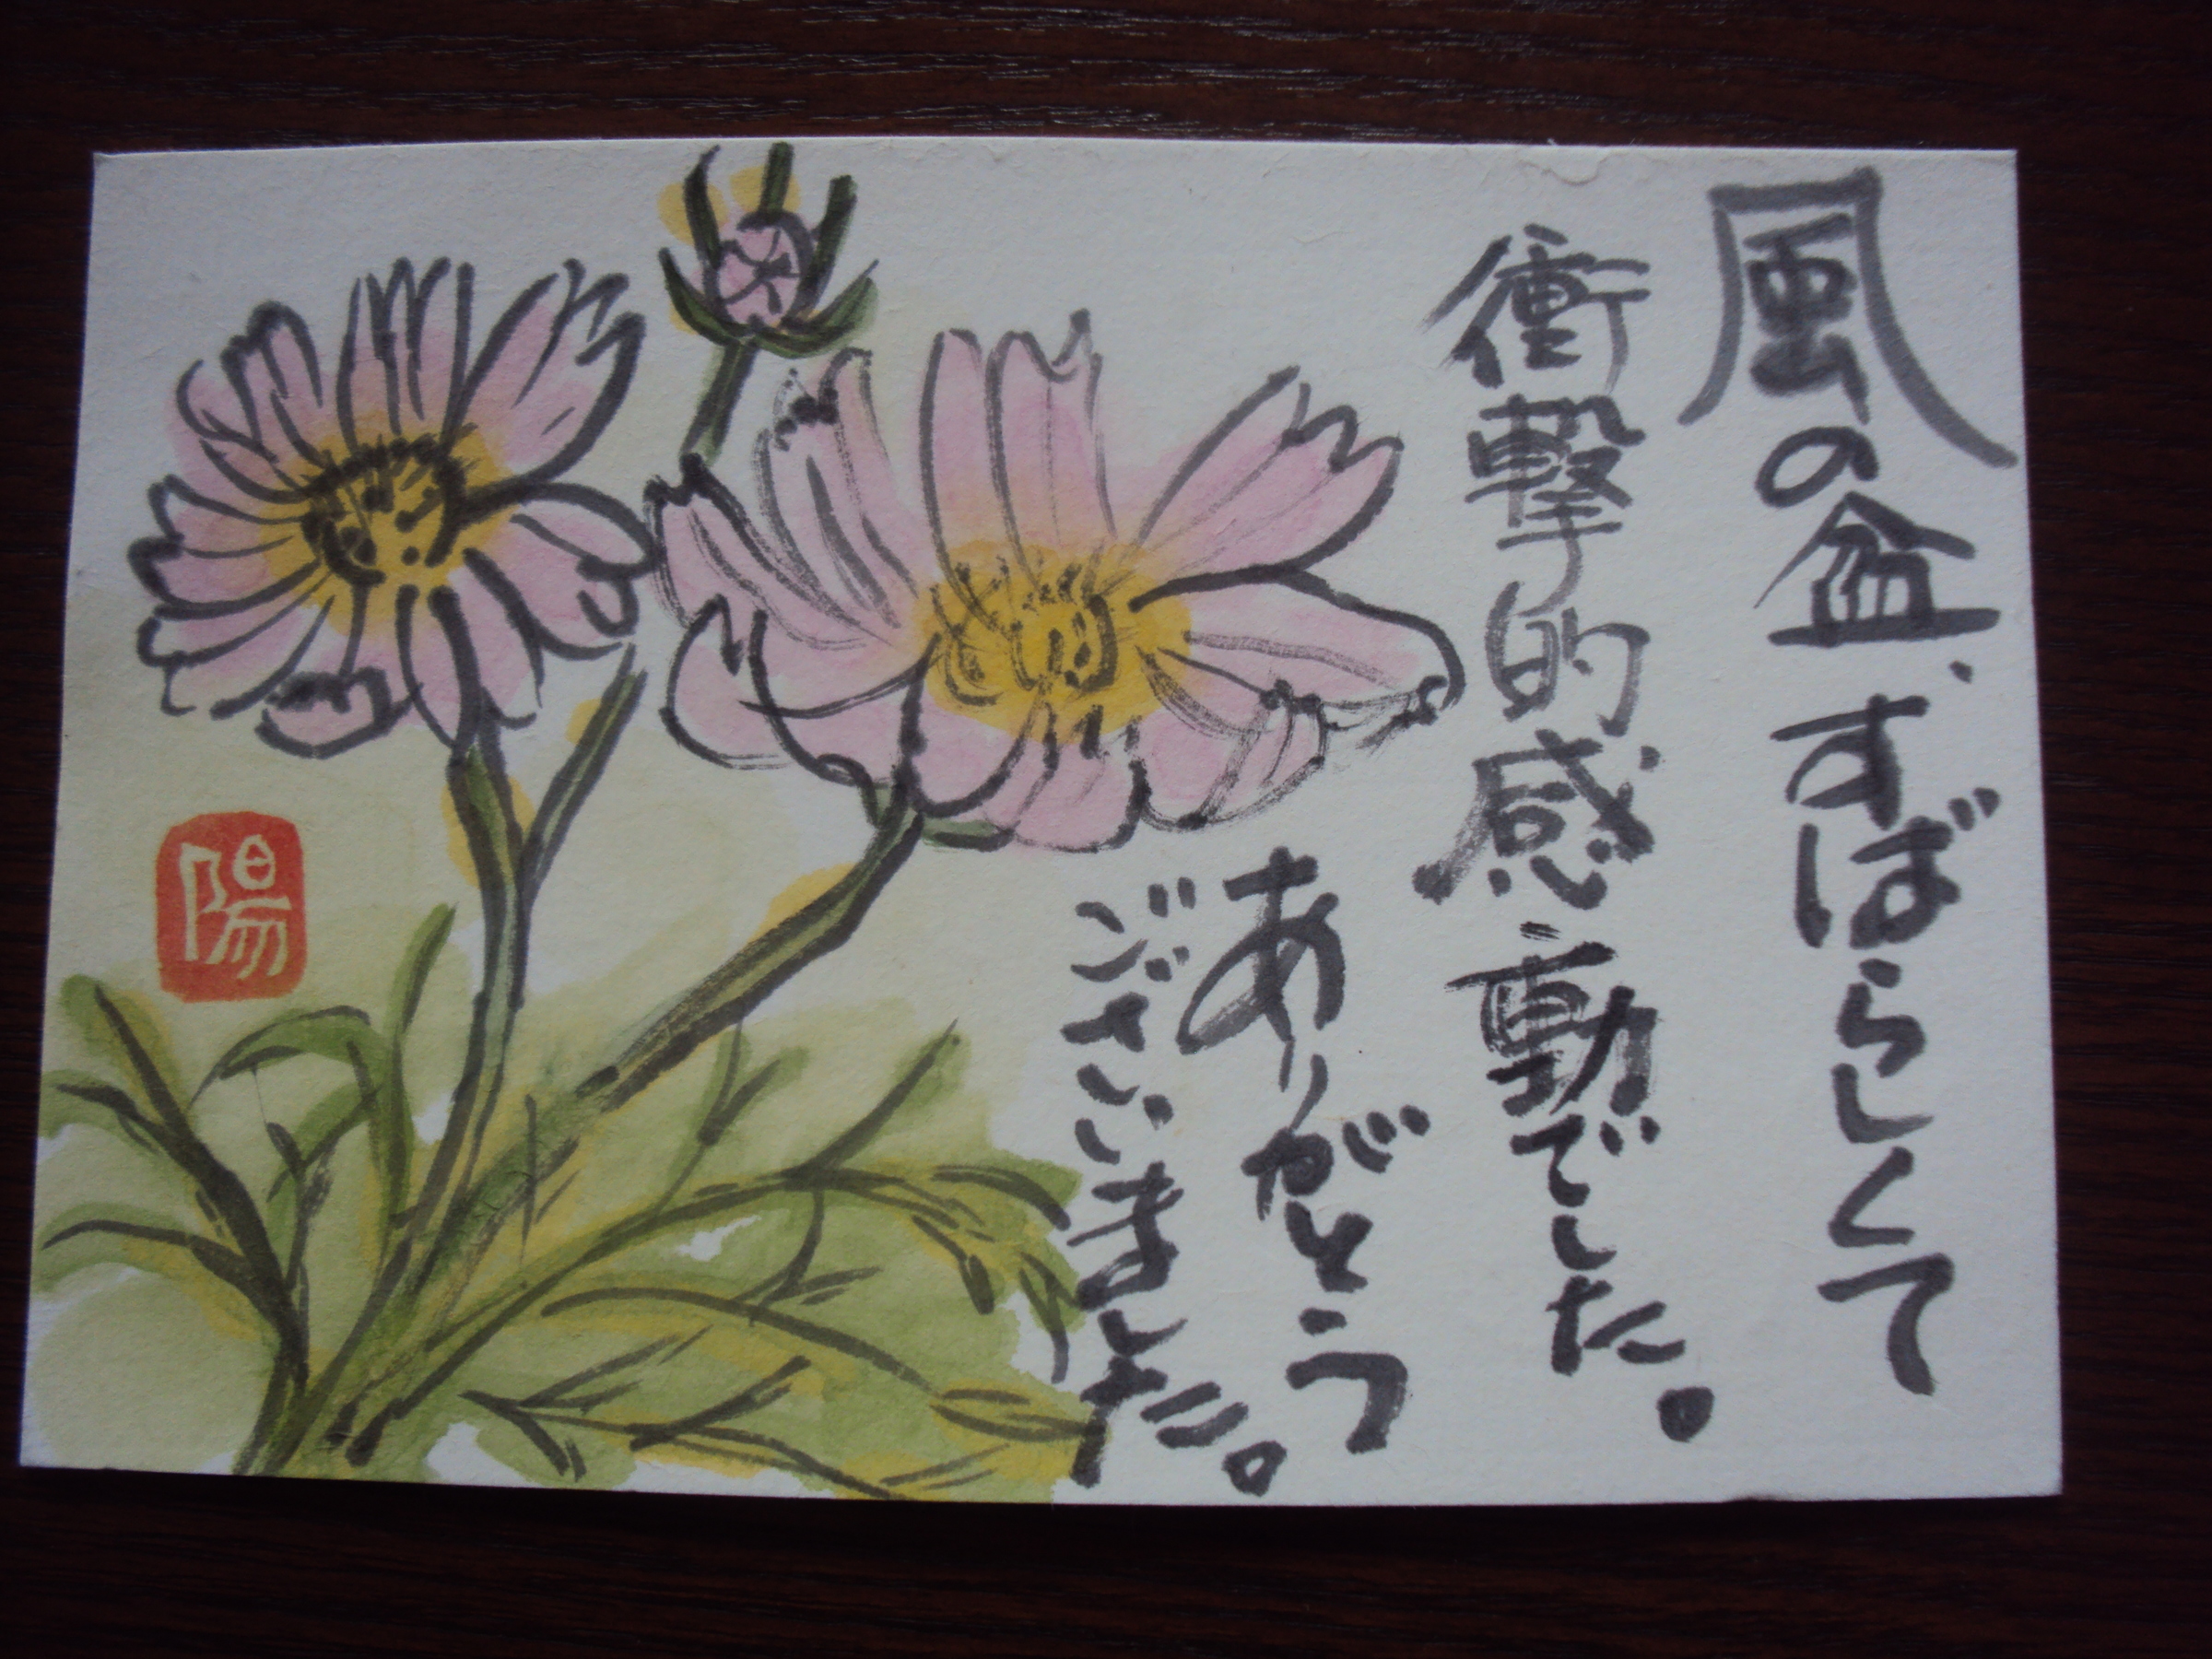 風の盆、すばらしくて
衝撃的感動でした。
ありがとう
ございました。
陽